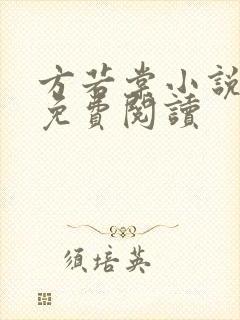 方若棠小說
免費閱讀
須培英